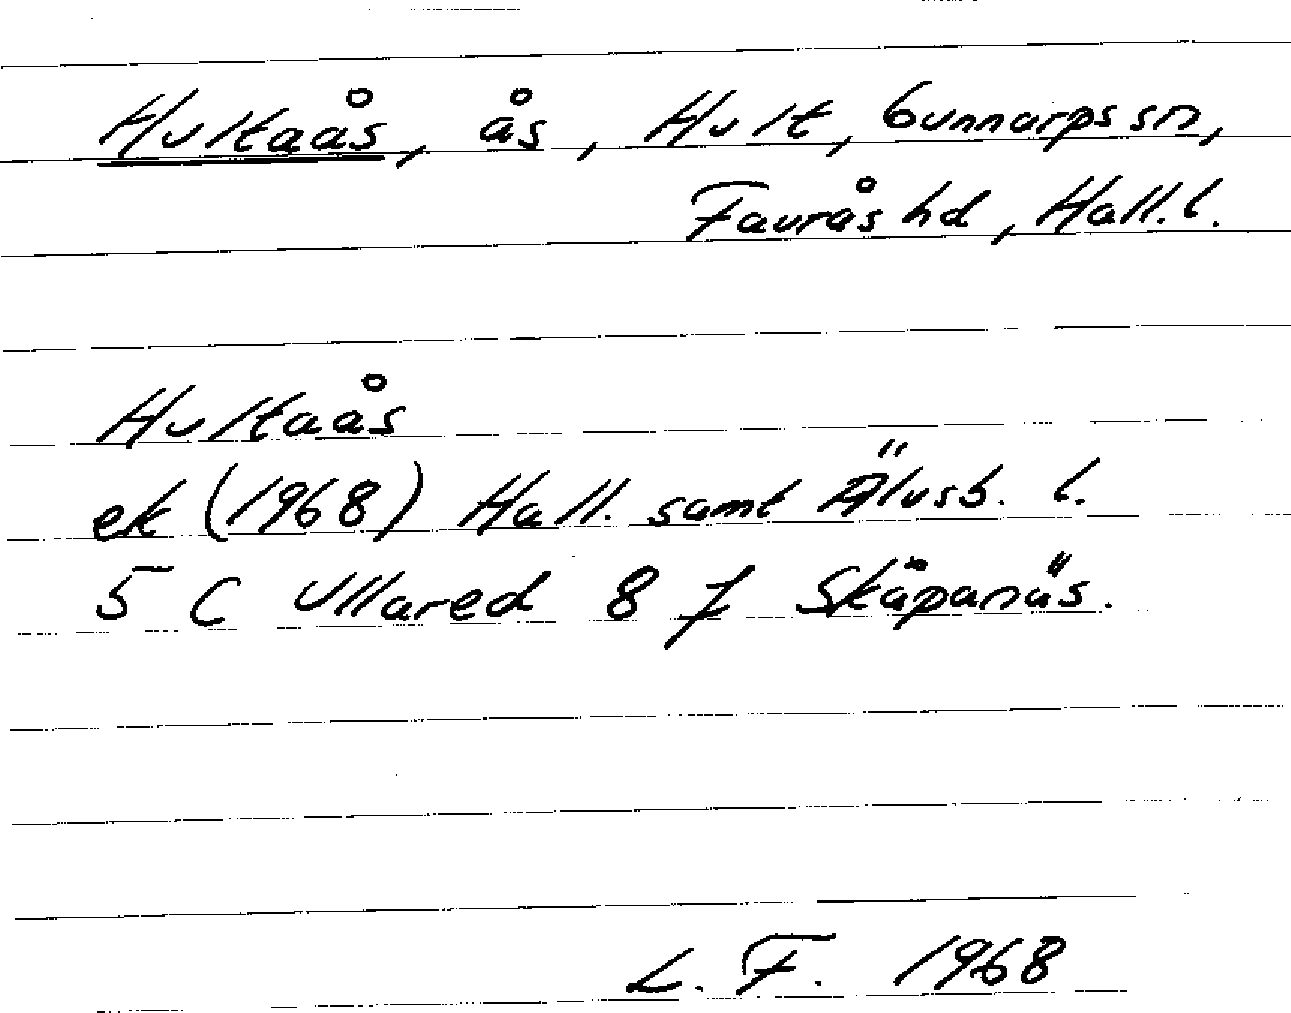 Hultaås, ås, Hult, Gunnarps sn,
Faurås hd, Hall. l.
Hultaås
ek (1968) Hall. samt Älvsb. l.
5 C Ullared 8 f Skäpanäs.
L. F. 1968